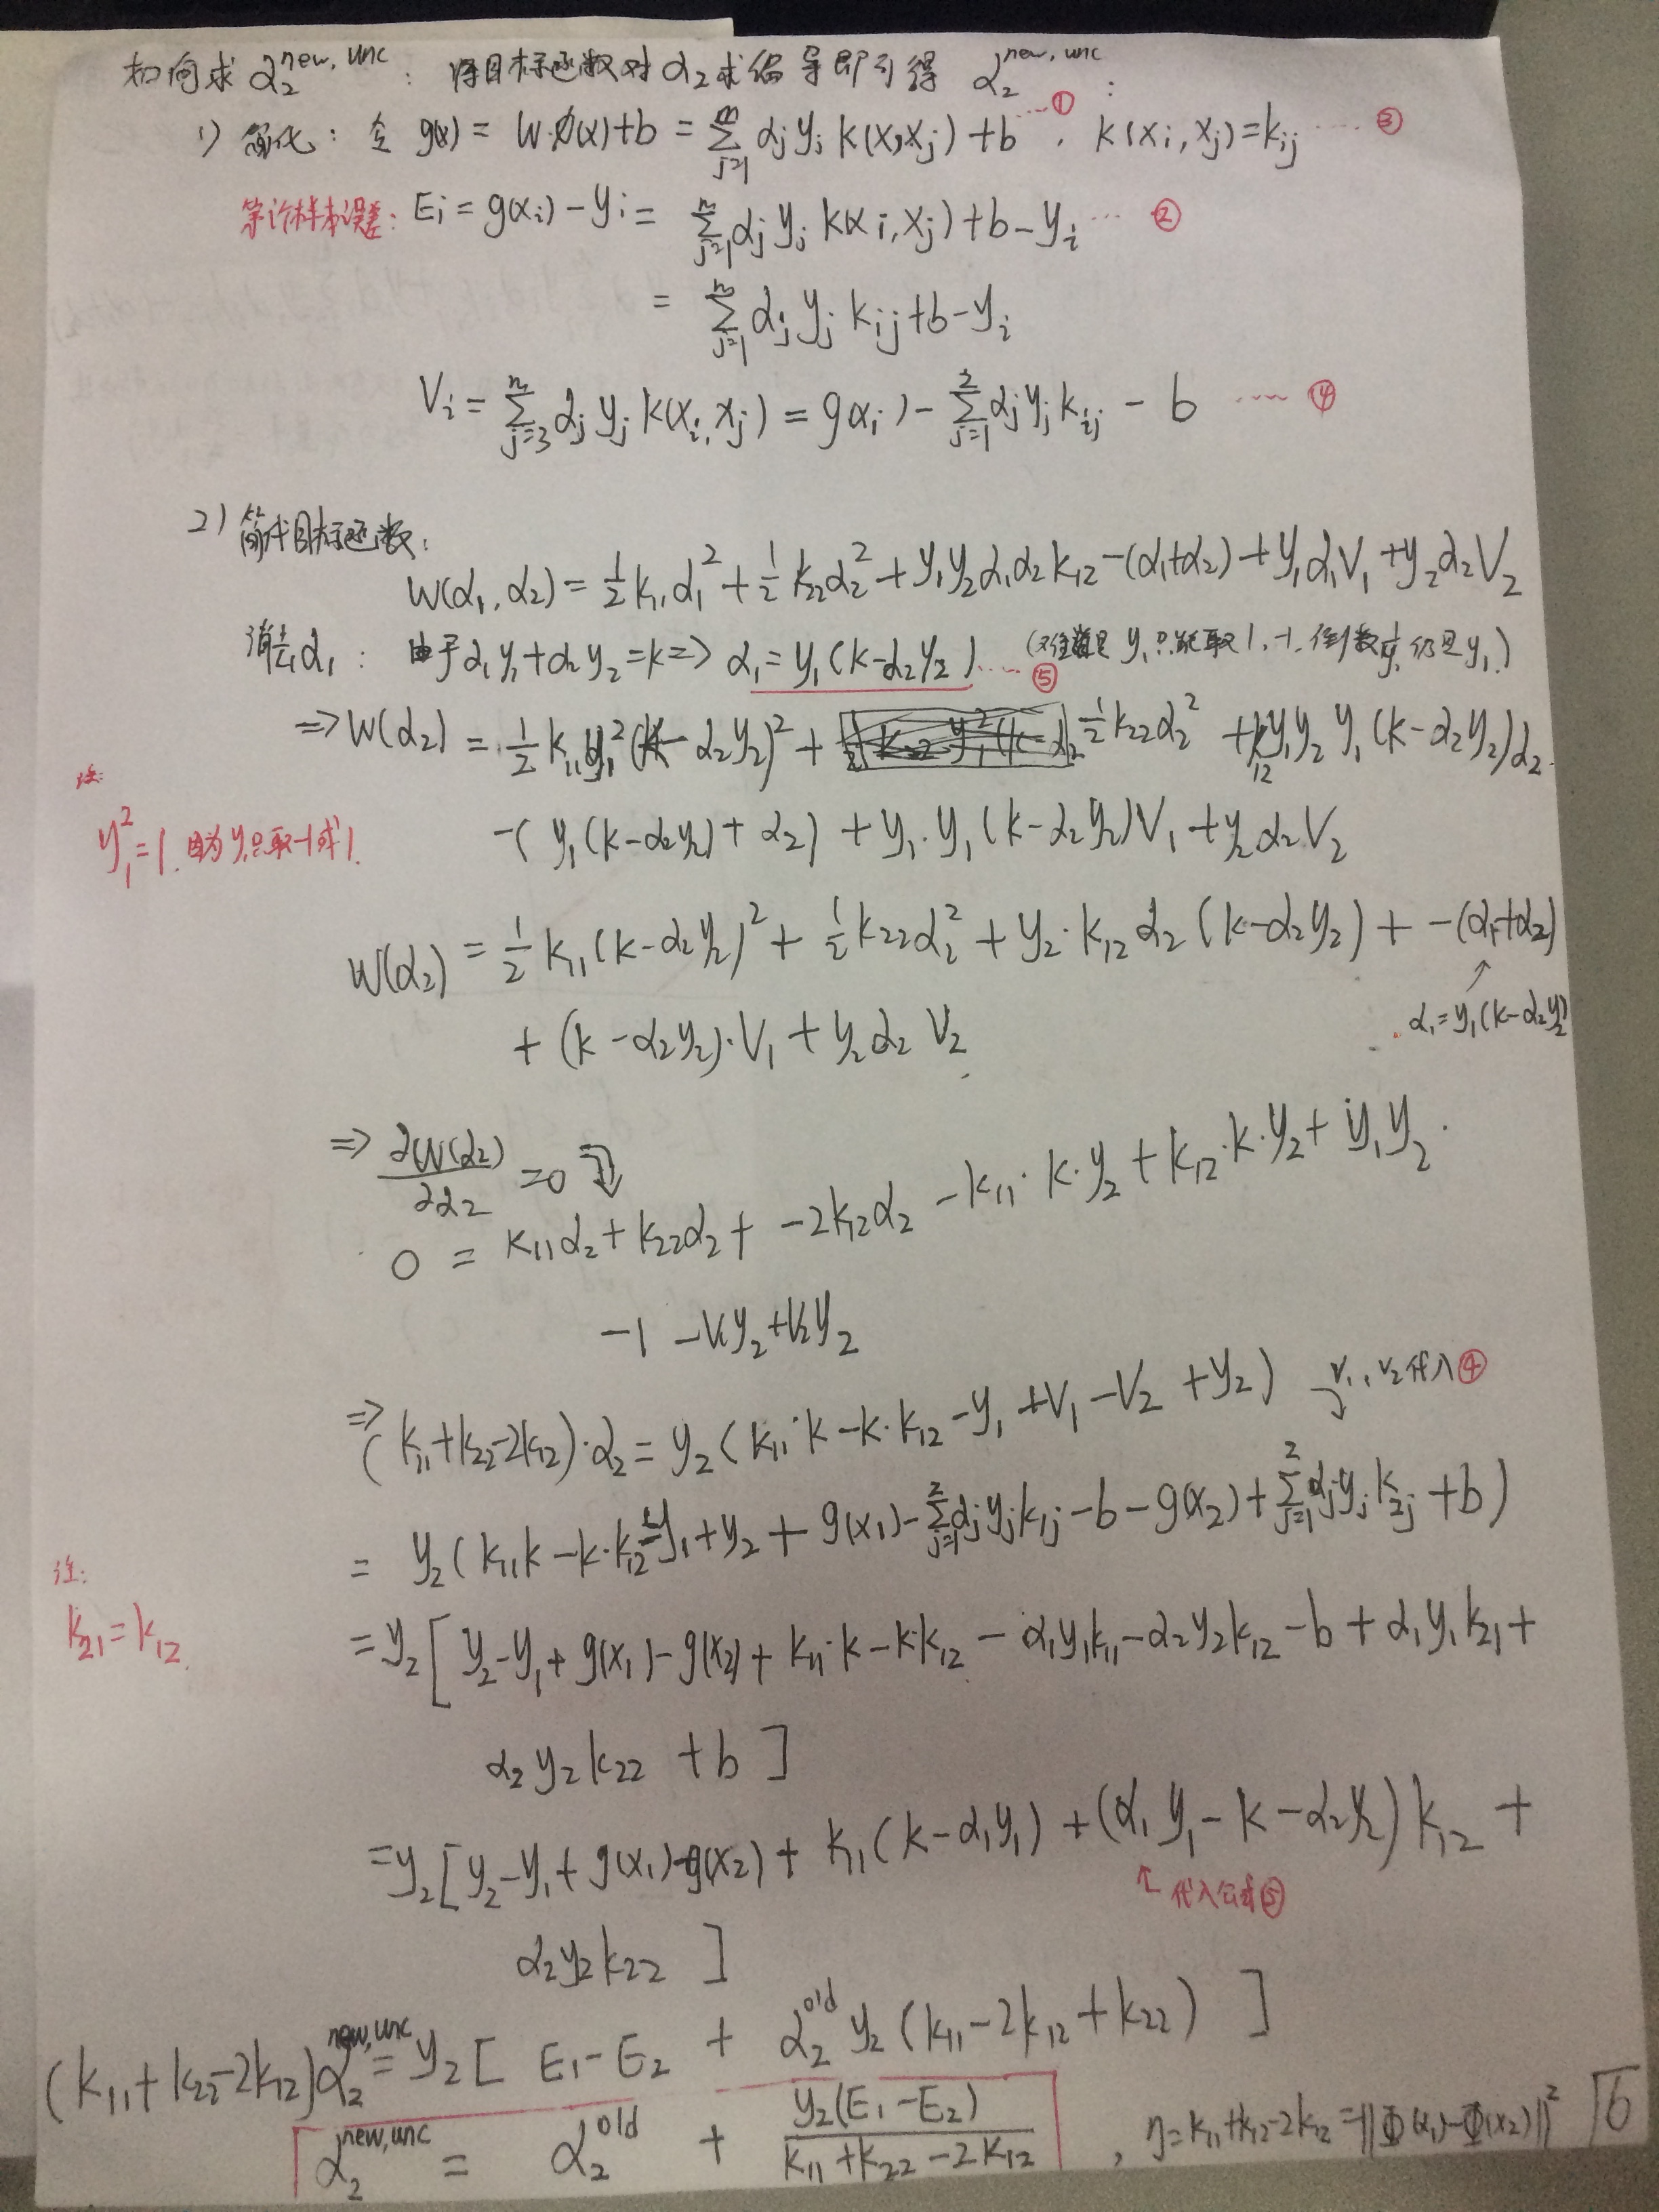 如何求 α₂^{new,unc}：将目标函数对 α₂ 求偏导即可得 α₂^{new,unc}：
1) 简化：令 g(x) = W·∅(x)+b = Σ_{j=1}^{m} αj yj k(x,xj)+b ···①，k(xi,xj)=kij ······③
第i个样本误差：Ei = g(xi)−yi = Σ_{j=1}^{m} αj yj k(xi,xj)+b−yi ···②
= Σ_{j=1}^{m} αj yj kij+b−yi
Vi = Σ_{j=3}^{m} αj yj k(xi,xj) = g(xi) − Σ_{j=1}^{2} αj yj kij − b ······④
2) 简化目标函数：
W(α₁,α₂) = ½k₁₁α₁² + ½k₂₂α₂² + y₁y₂α₁α₂k₁₂ −(α₁+α₂) + y₁α₁V₁ + y₂α₂V₂
消去α₁：由于 α₁y₁+α₂y₂=k => α₁=y₁(k−α₂y₂) ····⑤ (y₁只能取1,-1, 倒数仍是y₁)
=> W(α₂) = ½k₁₁y₁²(k−α₂y₂)² + ½k₂₂α₂² + k₁₂y₁y₂y₁(k−α₂y₂)α₂
注：
y₁²=1. 因为y₁只取−1或1.
−(y₁(k−α₂y₂)+α₂) + y₁·y₁(k−α₂y₂)V₁ + y₂α₂V₂
W(α₂) = ½k₁₁(k−α₂y₂)² + ½k₂₂α₂² + y₂·k₁₂α₂(k−α₂y₂) + −(α₁+α₂)
↑ α₁=y₁(k−α₂y₂)
+ (k−α₂y₂)·V₁ + y₂α₂V₂
=> ∂W(α₂)/∂α₂ = 0
0 = k₁₁α₂ + k₂₂α₂ + −2k₁₂α₂ −k₁₁·k·y₂ + k₁₂·k·y₂ + y₁y₂
−1 −V₁y₂+V₂y₂
=> (k₁₁+k₂₂−2k₁₂)·α₂ = y₂(k₁₁·k−k·k₁₂−y₁+V₁−V₂+y₂) V₁,V₂代入④
= y₂(k₁₁k−k·k₁₂−y₁+y₂+g(x₁)−Σ_{j=1}^{2} αj yj k₁j−b−g(x₂)+Σ_{j=1}^{2} αj yj k₂j+b)
注：
k₂₁=k₁₂
= y₂[y₂−y₁+g(x₁)−g(x₂)+k₁₁·k−k·k₁₂−α₁y₁k₁₁−α₂y₂k₁₂−b+α₁y₁k₂₁+
α₂y₂k₂₂+b]
= y₂[y₂−y₁+g(x₁)−g(x₂)+k₁₁(k−α₁y₁)+(α₁y₁−k−α₂y₂)k₁₂+
↑代入公式⑤
α₂y₂k₂₂]
(k₁₁+k₂₂−2k₁₂)α₂^{new,unc} = y₂[E₁−E₂ + α₂^{old}y₂(k₁₁−2k₁₂+k₂₂)]
α₂^{new,unc} = α₂^{old} + y₂(E₁−E₂)/(k₁₁+k₂₂−2k₁₂)，η=k₁₁+k₂₂−2k₁₂=||Φ(x₁)−Φ(x₂)||²
6